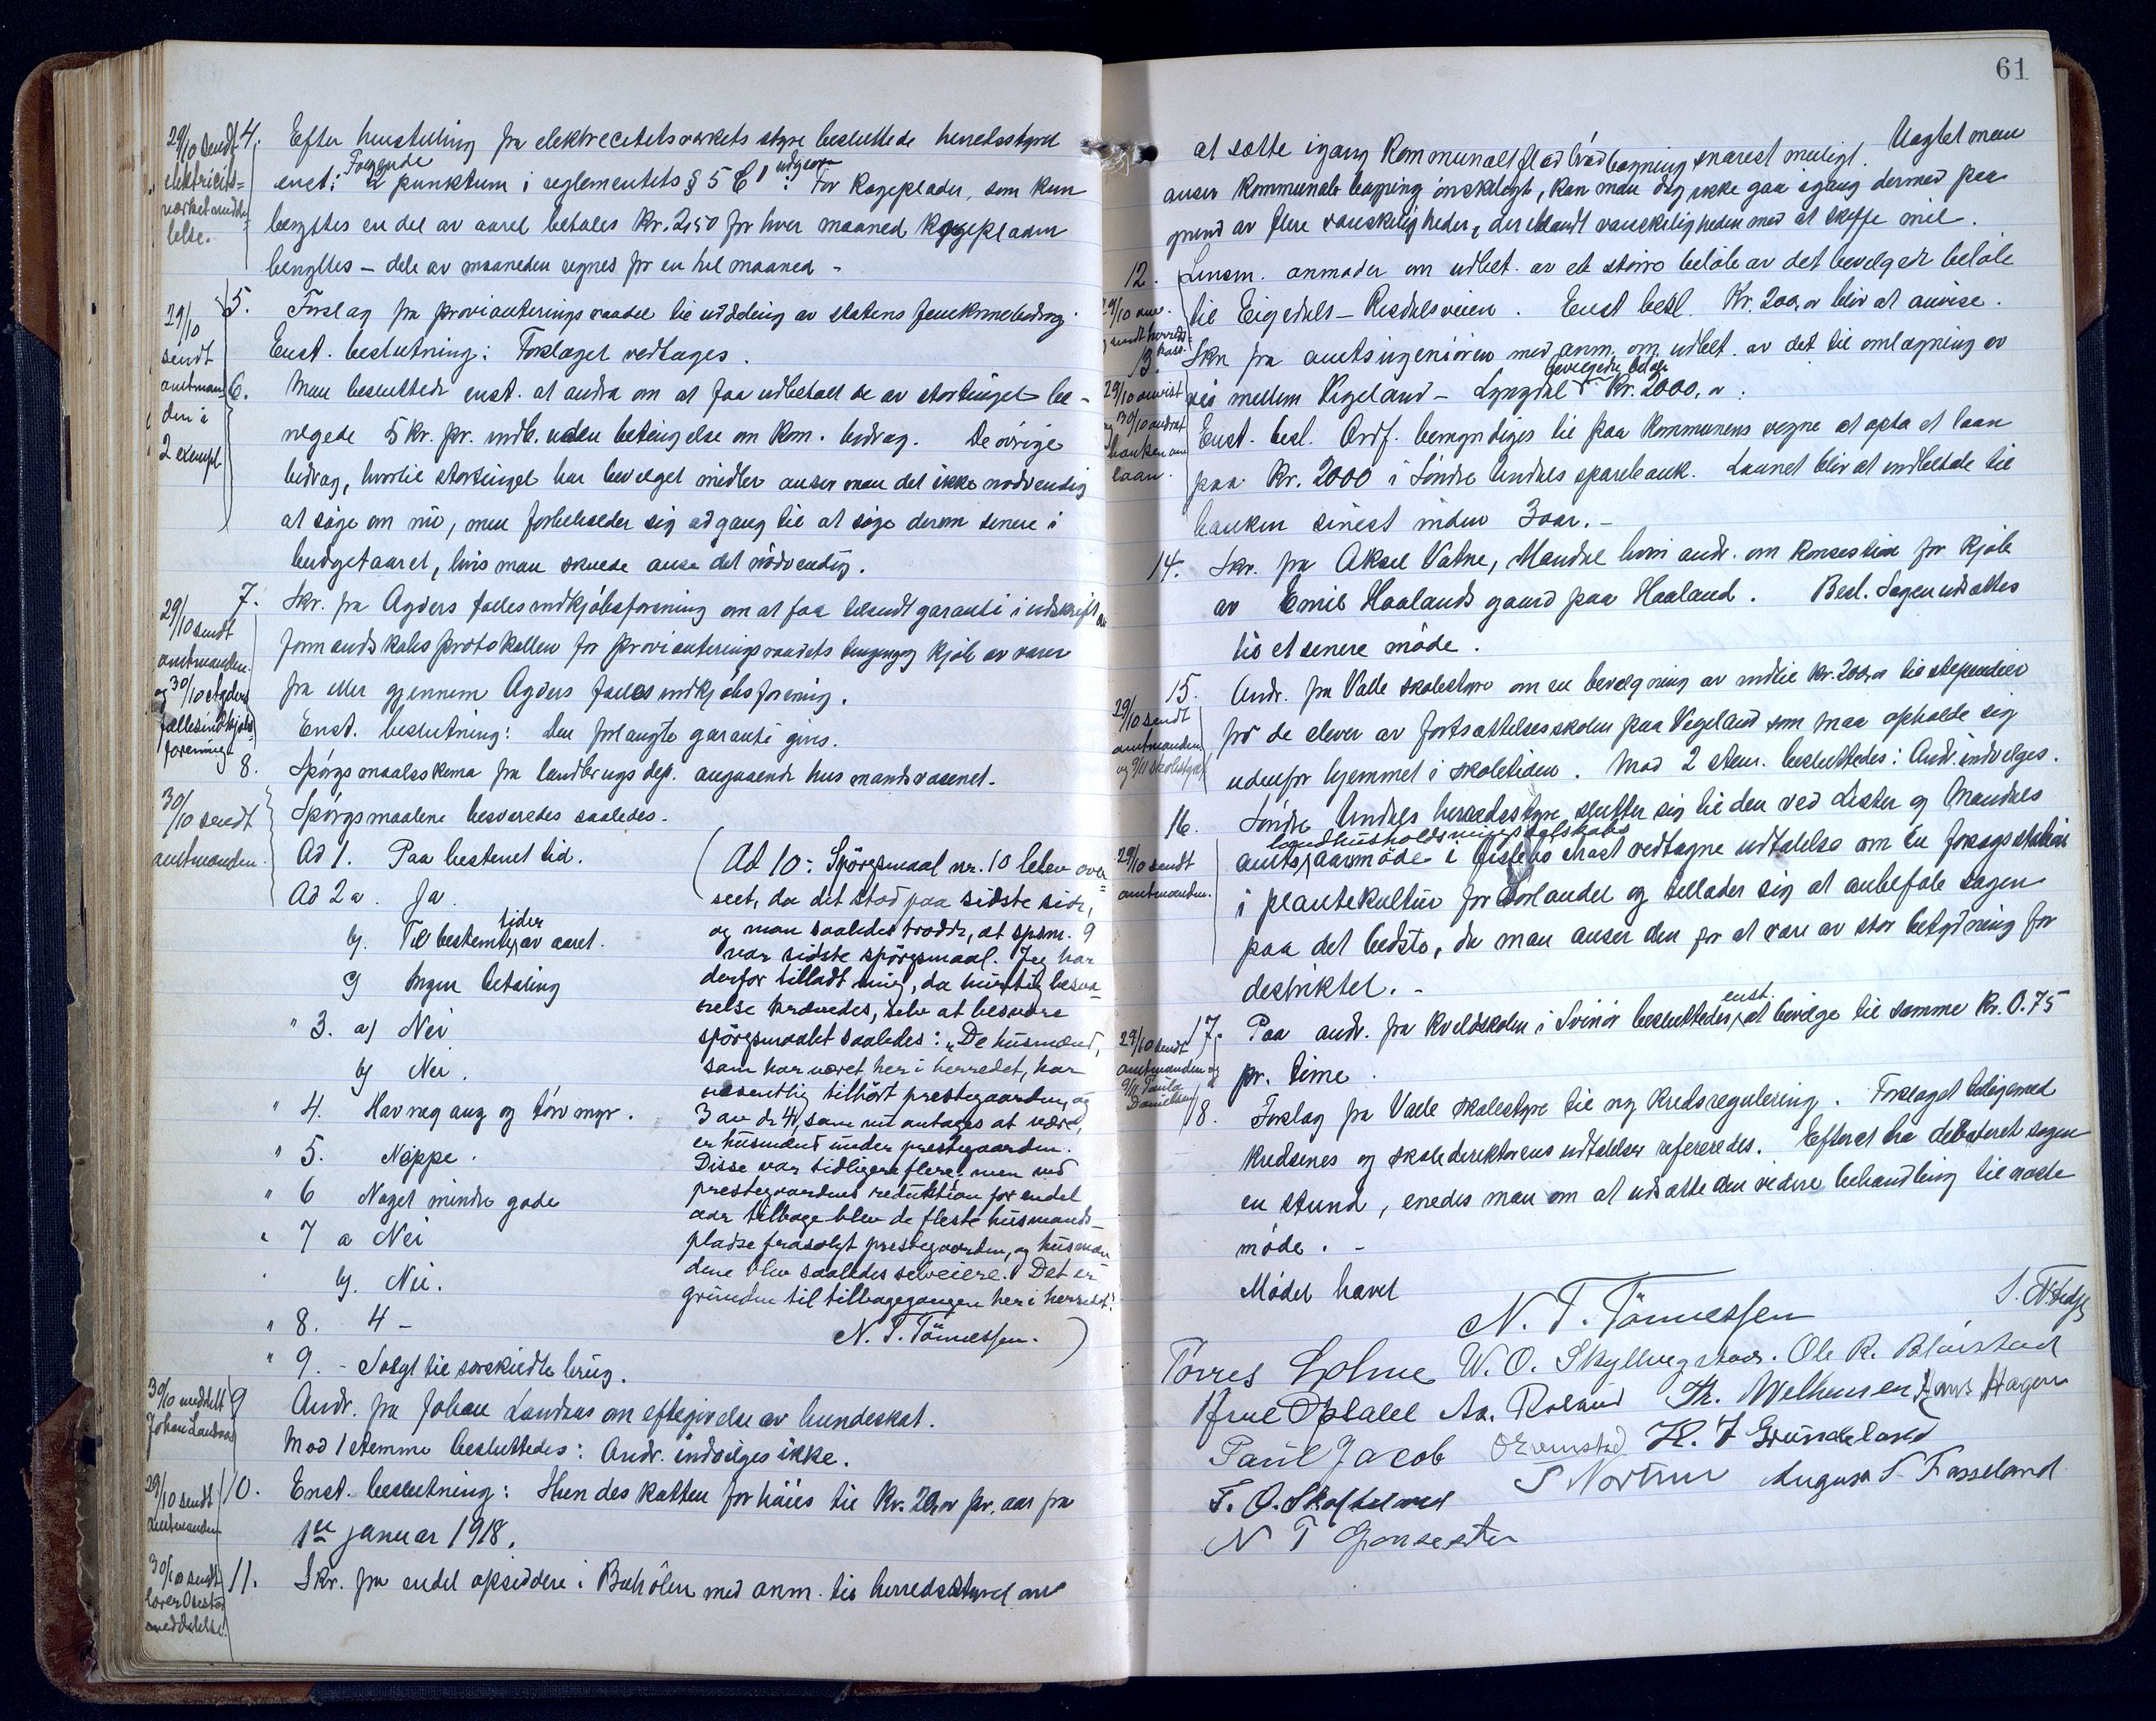 29/10 sendt
elektricits=
værket medde=
lelse.
4. Efter henstilling fra elektrecitetsværkets styre besluttede herredsstyret
enst: Følgende 2 punktum i reglementets § 5 C 1 utgaar: For kogeplader, som kun
benyttes en del av aaret betales Kr. 2,50 for hver maaned kogepladen
benyttes – dele av maaneden regnes for en hel maaned –
29/10
sendt
amtman=
den i
2 exempl.
5. Forslag fra provianteringsraadet til uddeling av statens femkronebidrag.
Enst. beslutning: Forslaget vedtages.
6. Man besluttede enst. at andra om at faa udbetalt de av stortinget be-
vilgede 5 kr. pr. indb. uden betingelse om kom. bidrag. De øvrige
bidrag, hvortil stortinget har bevilget midler anser man det ikke nødvendig
at søge om nu, men forbeholder sig adgang til at søge derom senere i
budgetaaret, hvis man skulde anse det nødvendig.
29/10 sendt
amtmanden
og 30/10 Agders
fællesindkjøbs=
forening
7. Skr. fra Agders fællesindkjøbsforening om at faa tilsendt garanti i udskrift av
formandskabsprotokollen for provianteringsraadets kjøb av varer
fra eller gjennem Agders fællesindkjøbsforening.
Enst. beslutning: Den forlangte garanti gives.
8. Spørgsmaalsskema fra landbrugsdep. angaaende husmandsvæsenet.
30/10 sendt
amtmanden.
Spørgsmaalene besvaredes saaledes.
Ad 1. Paa bestemt tid.
Ad 2 a. Ja.
b. Til bestemte tider av aaret.
c) Ingen betaling
" 3. a) Nei
b) Nei.
" 4. Havnegang og torvmyr.
" 5. Neppe.
" 6 Noget mindre gode
" 7 a Nei
b. Nei.
" 8. 4 –
" 9. – Solgt til særskilte brug.
(Ad 10: Spørgsmaal nr. 10 blev over=
seet, da det stod paa sidste side,
og man saaledes trodde, at spsm. 9
var sidste spørgsmaal. Jeg har
derfor tilladt mig, da hurtig besva-
relse krævedes, selv at besvare
spørgsmaalet saaledes: "De husmænd,
som har været her i herredet, har
væsentlig tilhørt prestegaarden, og
3 av de 4, som nu antages at være,
er husmænd under prestegaarden.
Disse var tidligere flere, men ved
prestegaardens reduktion for endel
aar tilbage blev de fleste husmands-
pladse frasolgt prestegaarden, og husmæn
dene blev saaledes selveiere. Det er
grunden til tilbagegangen her i herredet."
N. T. Tönnessen.)
30/10 meddelt
Johan Landaas
9 Andr. fra Johan Landaas om eftergivelse av hundeskat.
Mod 1 stemme besluttedes: Andr. indvilges ikke.
29/10 sendt
amtmanden
10. Enst. beslutning: Hundeskatten forhøies til Kr. 20,00 pr. aar fra
1ste januar 1918.
30/10 sendt
meddelelse.
11. Skr. fra endel opsiddere i med anm. til herredsstyret om
61
at sætte igang kommunalt favnvedhogning snarest muligt. Uagtet man
anser kommunale hogning ønskeligt, kan man dog ikke gaa igang dermed paa
grund av flere vanskeligheder, deriblandt vanskeligheden med at skaffe mel.
29/10 anv.
12. Lensm. anmoder om udbet. av et større beløb av det bevilgede beløb
til Eigedals–Risdalsveien. Enst besl. Kr. 200,00 blir at anvise.
29/10 anvist
og 30/10 andrat
banken om
laan.
13. Skr. fra amtsingeniøren med anm. om udbet. av det til omlægning av
vei mellem Vigeland – Lyngdal bevilgede beløb Kr. 2000,00.
Enst. besl. Ordf. bemyndiges til paa kommunens vegne at opta et laan
paa Kr. 2000 i Søndre Undals sparebank. Laanet blir at indbetale til
banken senest inden 3 aar. –
14. Skr. fra Aksel Vatne, Mandal hvori andr. om konsesion for kjøb
av Emil Haalands gaard paa Haaland. Besl. Sagen udsættes
til et senere møde.
29/10 sendt
amtmanden
og 9/11 skolestyret
15. Andr. fra Valle skolestyre om en bevilgning av indtil kr. 200,00 til stipendier
for de elever av fortsættelsesskolen paa Vigeland som maa opholde sig
udenfor hjemmet i skoletiden. Mod 2 stem. besluttedes: Andr. indvilges.
29/10 sendt
amtmanden.
16. Søndre Undals herredsstyre slutter sig til den ved Lister og Mandals
amts landhusholdningsselskabs aarsmøde i høst vedtagne udtalelse om en forsøgsstation
i plantekultur for Sørlandet og tillader sig at anbefale sagen
paa det bedste, da man anser den for at være av stor betydning for
distriktet. –
29/10 sendt
amtmanden og
9/11 Paula
Danielsen
17. Paa andr. fra kveldskolen i Svinør besluttedes enst. at bevilge til samme Kr. 0.75
pr. time.
18. Forslag fra Valle skolestyre til ny kredsregulering. Forslaget tilligemed
kredsenes og skoledirektørens udtalelser refereredes. Efter at ha debateret sagen
en stund, enedes man om at udsætte den videre behandling til næste
møde. –
Mødet hævet
N. T. Tönnessen
Torres Holme W. O. Skyllingstad. Ole R. Blörstad
Aa. Roland Th. Wilhemsen Hans Hagen
Paul Jacob O Ervinstad K. T Grundeland
T. O. Skofteland S Nortun August S Fasseland
N T